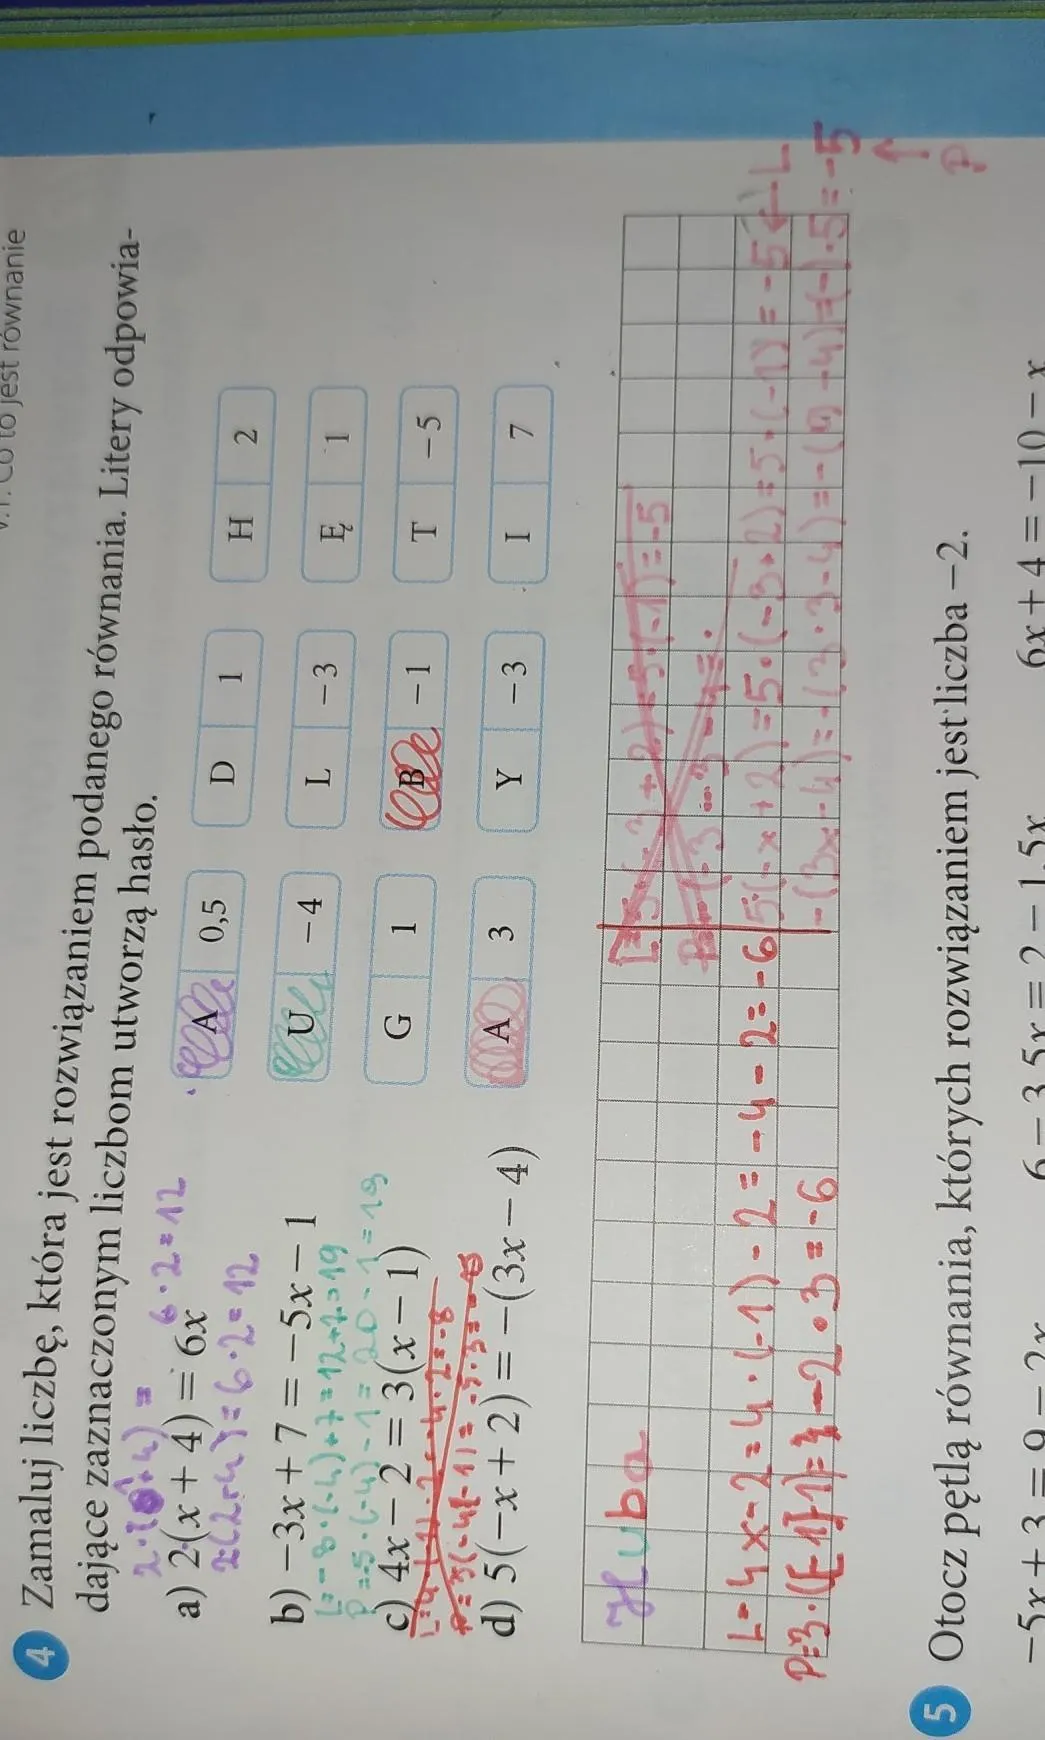 V.1. Co to jest równanie
4 Zamaluj liczbę, która jest rozwiązaniem podanego równania. Litery odpowia-
dające zaznaczonym liczbom utworzą hasło.
6·2=12
a) 2(x + 4) = 6x
A 0,5 D 1 H 2
2·(2+4)=6·2=12
b) −3x + 7 = −5x − 1
U −4 L −3 Ę 1
L=-3·(-4)+7=12+7=19
P=-5·(-4)-1=20-1=19
c) 4x − 2 = 3(x − 1)
G 1 B −1 T −5
d) 5(−x + 2) = −(3x − 4)
A 3 Y −3 I 7
Huba
L=4x-2=4·(-1)-2=-4-2=-6
P=3·([-1]-1)=3·-2·3=-6
5·(-x+2)=5·(-3+2)=5·(-1)=-5←L
-(3x-4)=-(3·3-4)=-(9-4)=(-)·5=-5
↑
P
5 Otocz pętlą równania, których rozwiązaniem jest liczba −2.
−5x + 3 = 9 − 2x 6 − 3,5x = 2 − 1,5x 6x + 4 = −10 − x